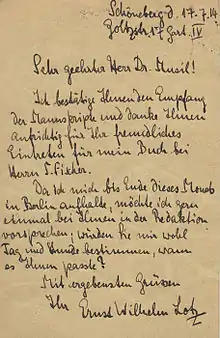 Schöneberg d. 17.7.14
Goltzstr. 17 Gart. IV
Sehr geehrter Herr Dr. Musil!
Ich bestätige Ihnen den Empfang
der Manuscripte und danke Ihnen
aufrichtig für Ihr freundliches
Eintreten für mein Buch bei
Herrn S. Fischer.
Da ich mich bis Ende dieses Monats
in Berlin aufhalte, möchte ich gern
einmal bei Ihnen in der Redaktion
vorsprechen; würden Sie mir wohl
Tag und Stunde bestimmen, wann
es Ihnen passte?
Mit ergebensten Grüssen
Ihr Ernst Wilhelm Lotz